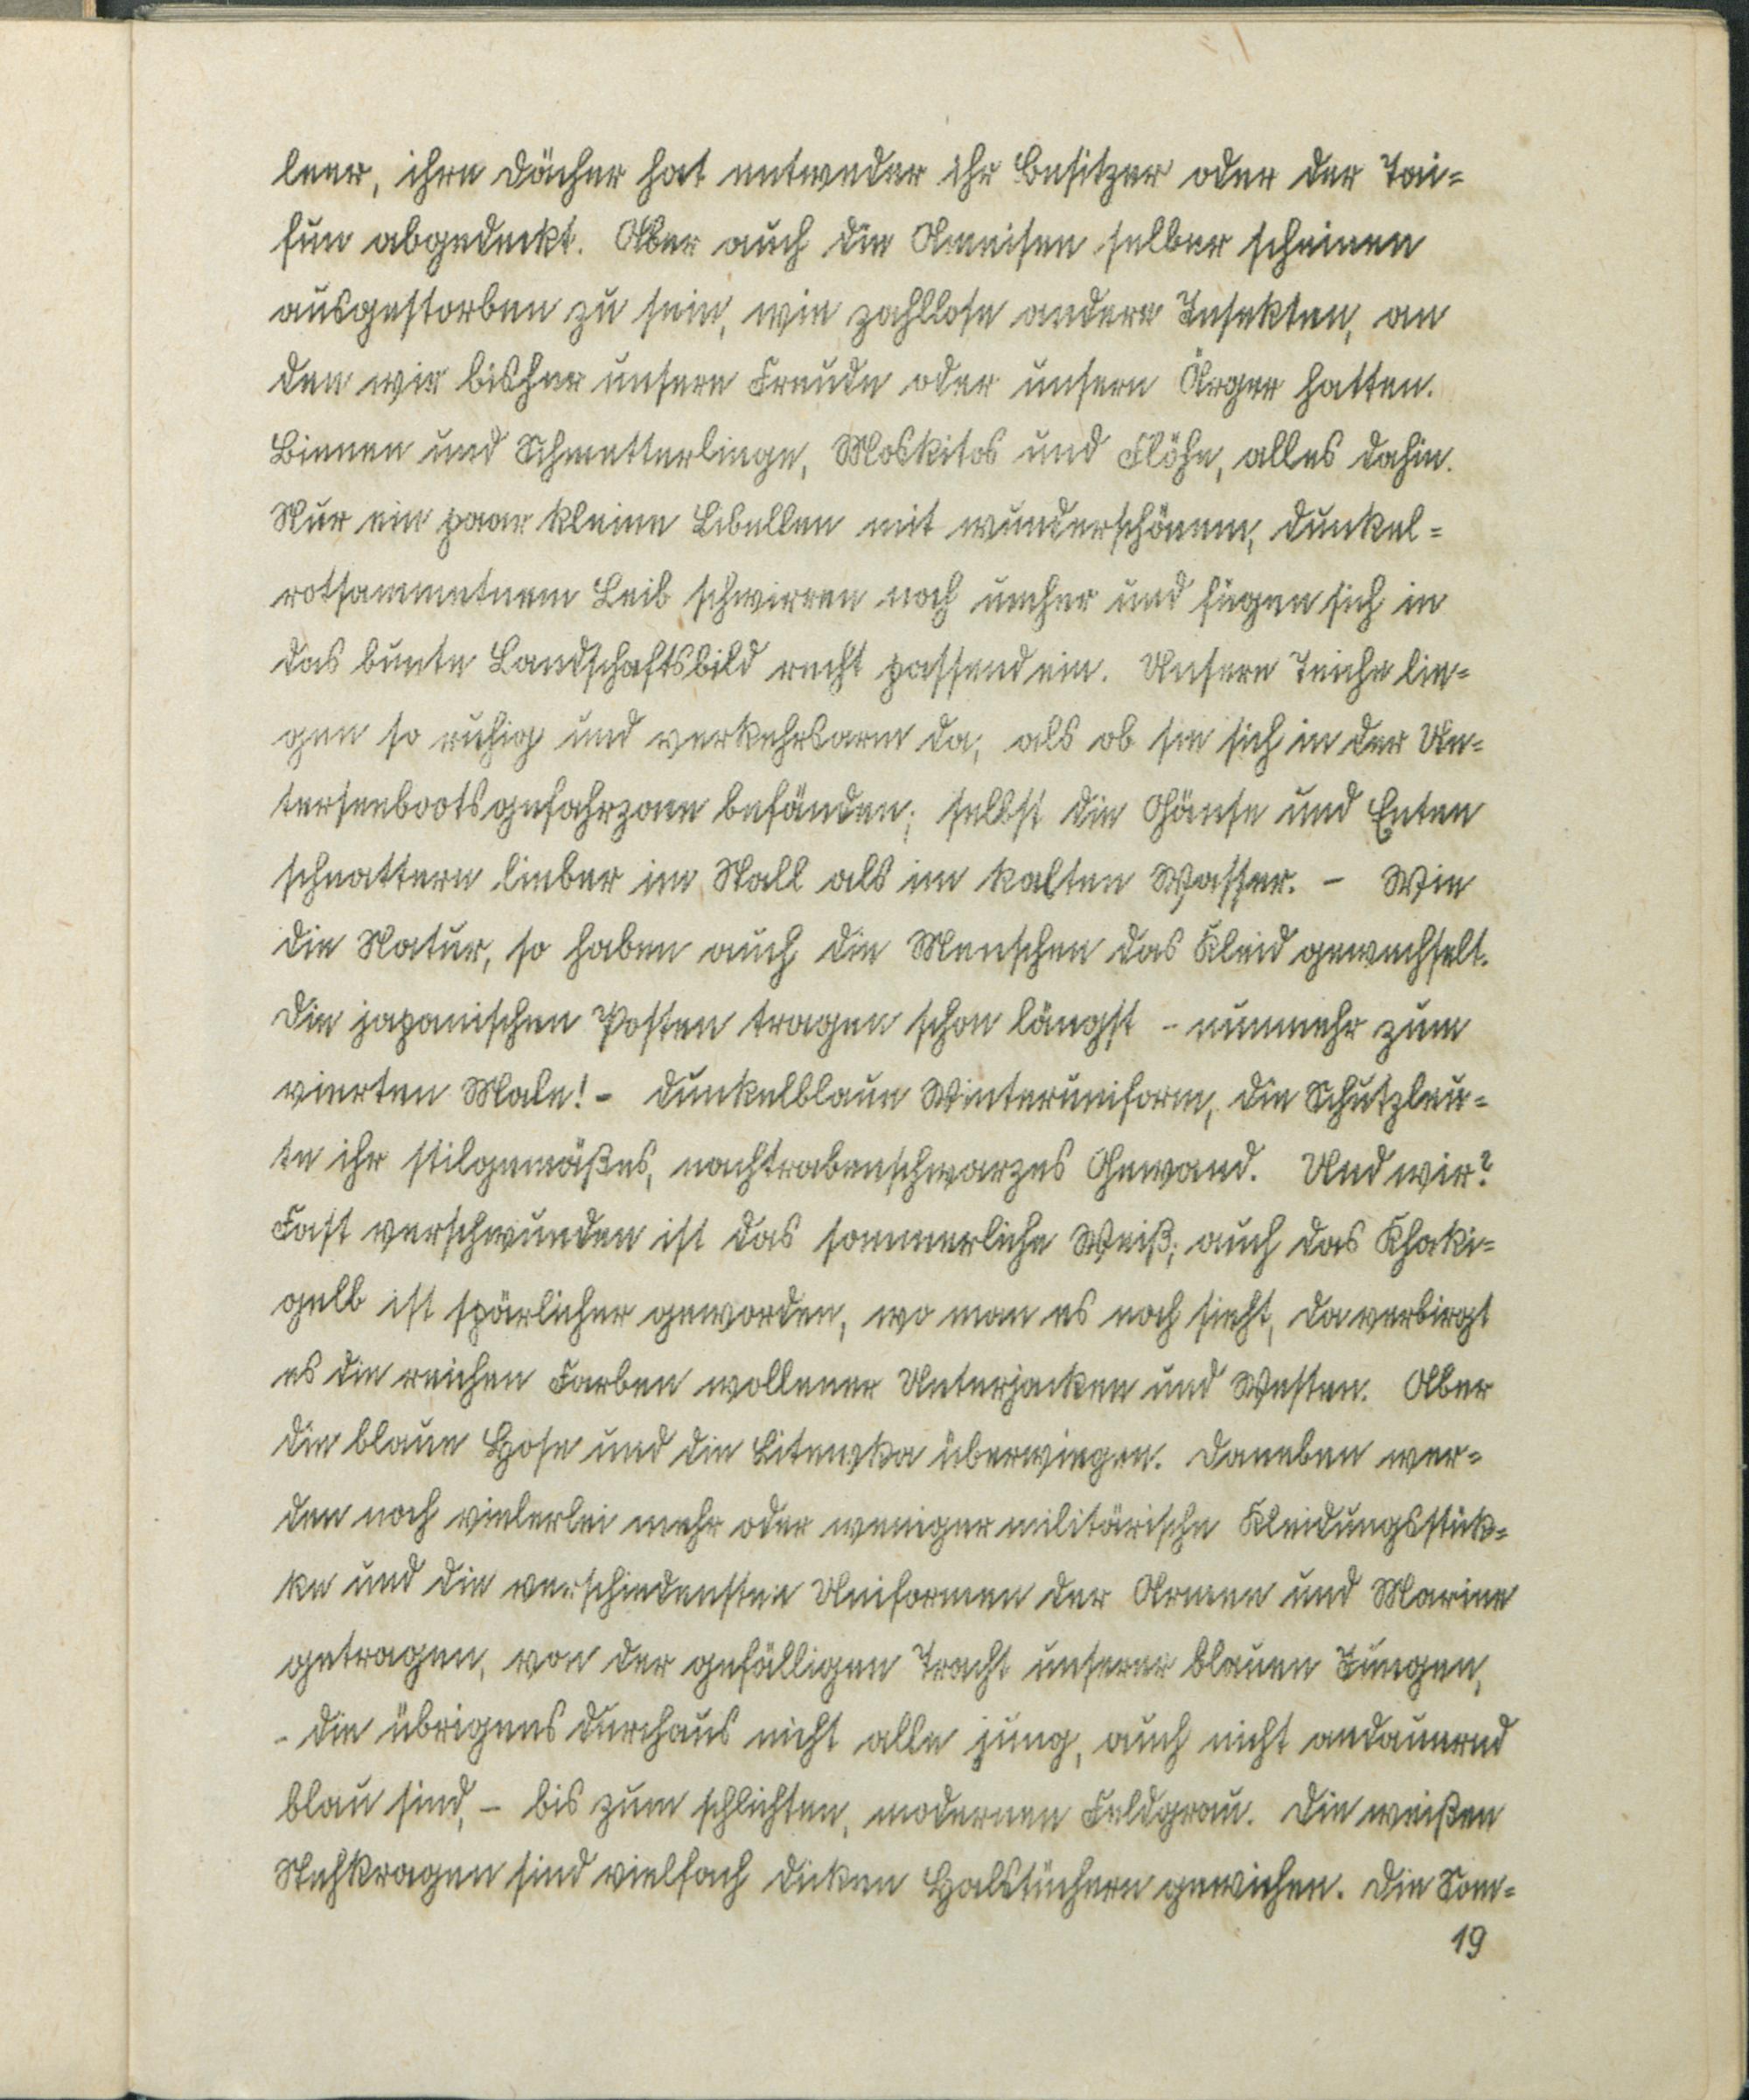 leer, ihre Dächer hat entweder ihr Besitzer oder der Tai=
fun abgedeckt. Aber auch die Ameisen selber scheinen
ausgestorben zu sein, wie zahllose andere Insekten, an
den wir bisher unsere Freude oder unsern Ärger hatten.
Bienen und Schmetterlinge, Moskitos und Flöhe, alles dahin.
Nur ein paar kleine Libellen mit wunderschönem, dunkel=
rotsammetnem Leib schwirren noch umher und fügen sich in
das bunte Landschaftsbild recht passend ein. Unsere Teiche lie=
gen so ruhig und verkehrsarm da, als ob sie sich in der Un=
terseebootsgefahrzone befänden; selbst die Gänse und Enten
schnattern lieber im Stall als im kalten Wasser. – Wie
die Natur, so haben auch die Menschen das Kleid gewechselt.
Die japanischen Posten tragen schon längst – nunmehr zum
vierten Male! – dunkelblaue Winteruniform, die Schutzleu=
te ihr stilgemäßes, nachtrabenschwarzes Gewand. Und wir?
Fast verschwunden ist das sommerliche Weiß; auch das Khaki=
gelb ist spärlicher geworden, wo man es noch sieht, da verbirgt
es die reichen Farben wollener Unterjacken und Westen. Aber
die blaue Hose und die Litewka überwiegen. Daneben wer=
den noch vielerlei mehr oder weniger militärische Kleidungsstük=
ke und die verschiedensten Uniformen der Armee und Marine
getragen, von der gefälligen Tracht unserer blauen Jungen,
– die übrigens durchaus nicht alle jung, auch nicht andauernd
blau sind, – bis zum schlichten, modernen Feldgrau. Die weißen
Stehkragen sind vielfach dicken Halstüchern gewichen. Die Som=
19